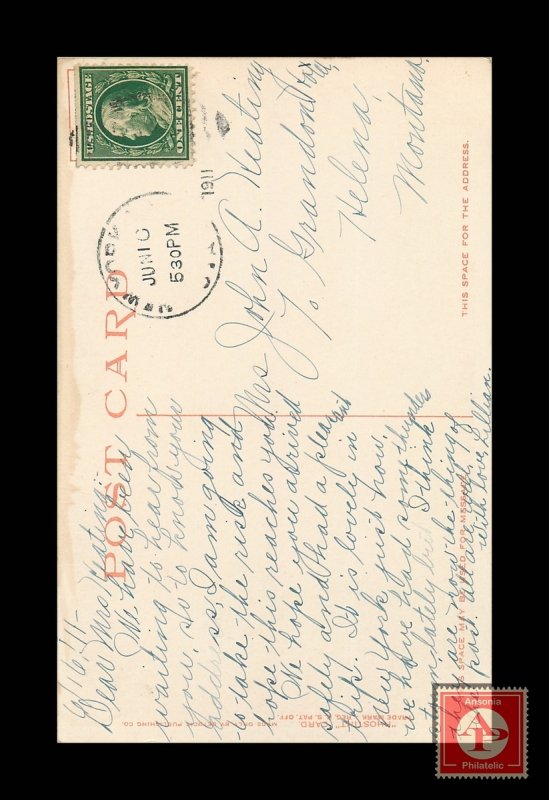 POST CARD
THIS SPACE MAY BE USED FOR MESSAGE.
THIS SPACE FOR THE ADDRESS.
U.S. POSTAGE
ONE CENT
NEW
JUN 16
530 PM
1911
6/16/11-
Dear Mrs Keating,
We have been
waiting to hear from
you, so to know your
address, I am going
to take the risk and
hope this reaches you
We hope you arrived
safely and had a pleasant
trip. It is lovely in
New York just now.
we have had some thunder
lately but I think
they are now things of
with love, Lillian.
Mrs John A. Keating
% Grandon
Helena
Montana.
"PHOSTINT" CARD.
TRADE MARK REG. U.S. PAT. OFF.
MADE ONLY BY DETROIT PUBLISHING CO.
Ansonia
AP
Philatelic